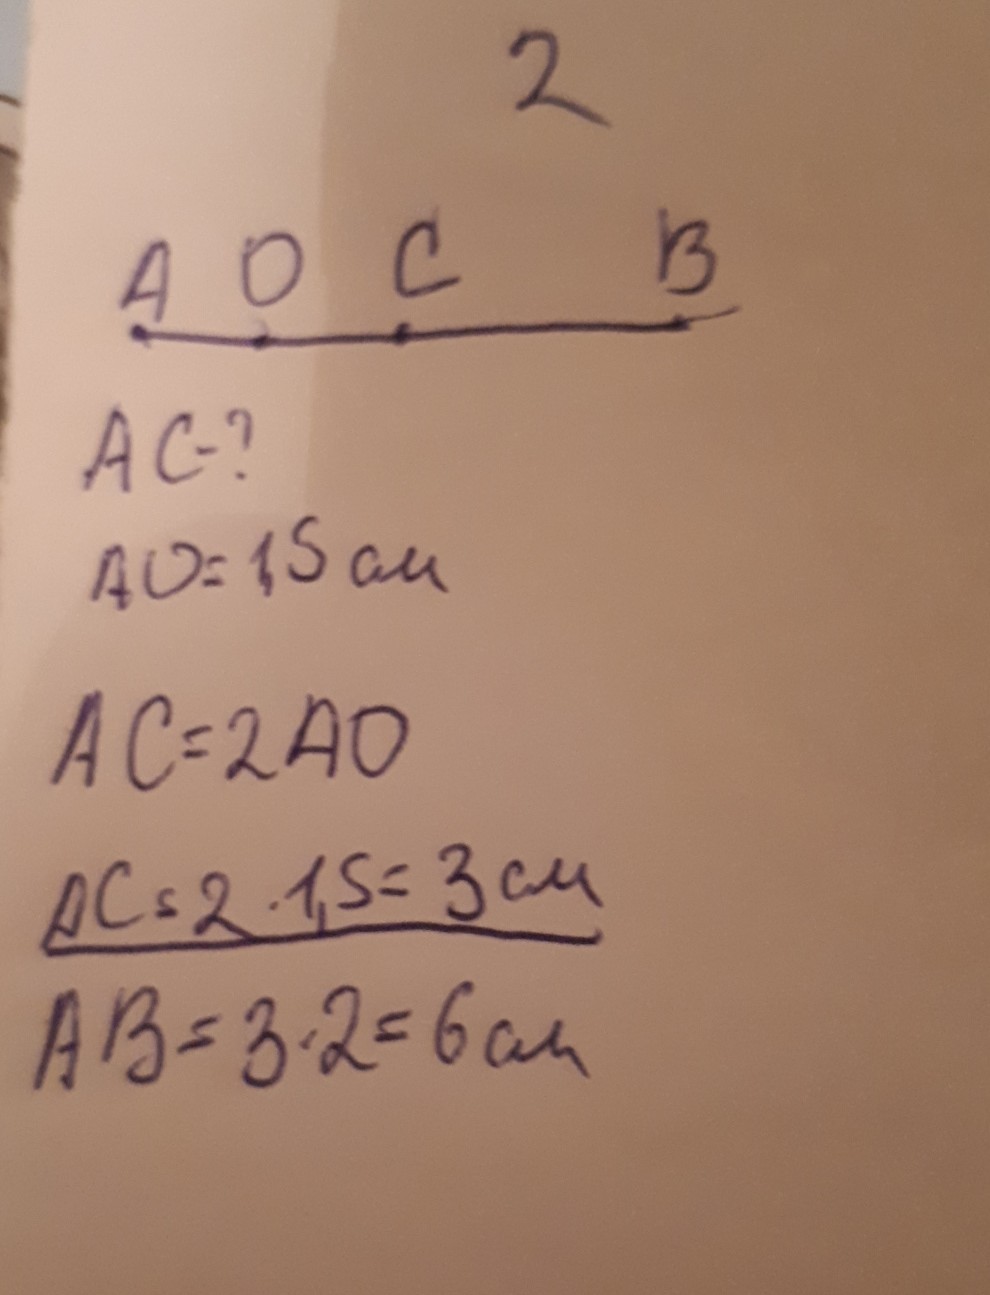 2
A O C B
AC-?
AO=1,5 см
AC=2AO
AC=2·1,5=3 см
AB=3·2=6 см